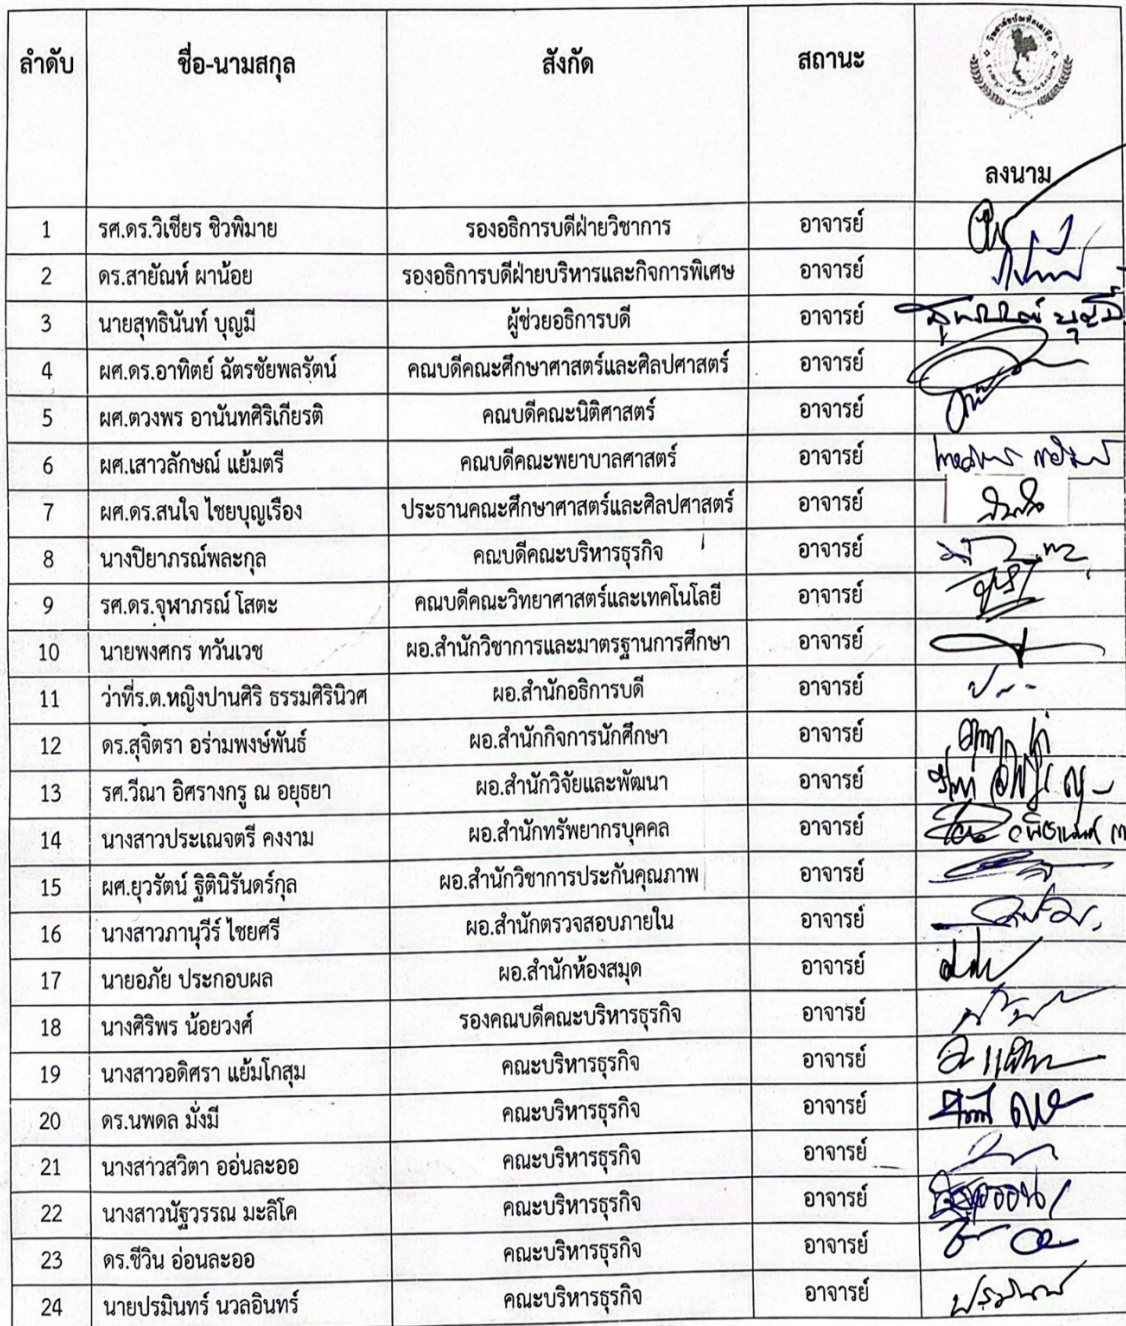 ลำดับ ชื่อ-นามสกุล สังกัด สถานะ
ลงนาม
1 รศ.ดร.วิเชียร ชิวพิมาย รองอธิการบดีฝ่ายวิชาการ อาจารย์
2 ดร.สายัณห์ ผาน้อย รองอธิการบดีฝ่ายบริหารและกิจการพิเศษ อาจารย์
3 นายสุทธินันท์ บุญมี ผู้ช่วยอธิการบดี อาจารย์
4 ผศ.ดร.อาทิตย์ ฉัตรชัยพลรัตน์ คณบดีคณะศึกษาศาสตร์และศิลปศาสตร์ อาจารย์
5 ผศ.ตวงพร อานันทศิริเกียรติ คณบดีคณะนิติศาสตร์ อาจารย์
6 ผศ.เสาวลักษณ์ แย้มตรี คณบดีคณะพยาบาลศาสตร์ อาจารย์
7 ผศ.ดร.สนใจ ไชยบุญเรือง ประธานคณะศึกษาศาสตร์และศิลปศาสตร์ อาจารย์
8 นางปิยาภรณ์พละกุล คณบดีคณะบริหารธุรกิจ อาจารย์
9 รศ.ดร.จุฬาภรณ์ โสตะ คณบดีคณะวิทยาศาสตร์และเทคโนโลยี อาจารย์
10 นายพงศกร ทวันเวช ผอ.สำนักวิชาการและมาตรฐานการศึกษา อาจารย์
11 ว่าที่ร.ต.หญิงปานศิริ ธรรมศิรินิวศ ผอ.สำนักอธิการบดี อาจารย์
12 ดร.สุจิตรา อร่ามพงษ์พันธ์ ผอ.สำนักกิจการนักศึกษา อาจารย์
13 รศ.วีณา อิศรางกรู ณ อยุธยา ผอ.สำนักวิจัยและพัฒนา อาจารย์
14 นางสาวประเณจตรี คงงาม ผอ.สำนักทรัพยากรบุคคล อาจารย์
15 ผศ.ยุวรัตน์ ฐิตินิรันดร์กุล ผอ.สำนักวิชาการประกันคุณภาพ อาจารย์
16 นางสาวภานุวีร์ ไชยศรี ผอ.สำนักตรวจสอบภายใน อาจารย์
17 นายอภัย ประกอบผล ผอ.สำนักห้องสมุด อาจารย์
18 นางศิริพร น้อยวงศ์ รองคณบดีคณะบริหารธุรกิจ อาจารย์
19 นางสาวอดิศรา แย้มโกสุม คณะบริหารธุรกิจ อาจารย์
20 ดร.นพดล มั่งมี คณะบริหารธุรกิจ อาจารย์
21 นางสาวสวิตา ออ่นละออ คณะบริหารธุรกิจ อาจารย์
22 นางสาวนัฐวรรณ มะลิโค คณะบริหารธุรกิจ อาจารย์
23 ดร.ชีวิน อ่อนละออ คณะบริหารธุรกิจ อาจารย์
24 นายปรมินทร์ นวลอินทร์ คณะบริหารธุรกิจ อาจารย์